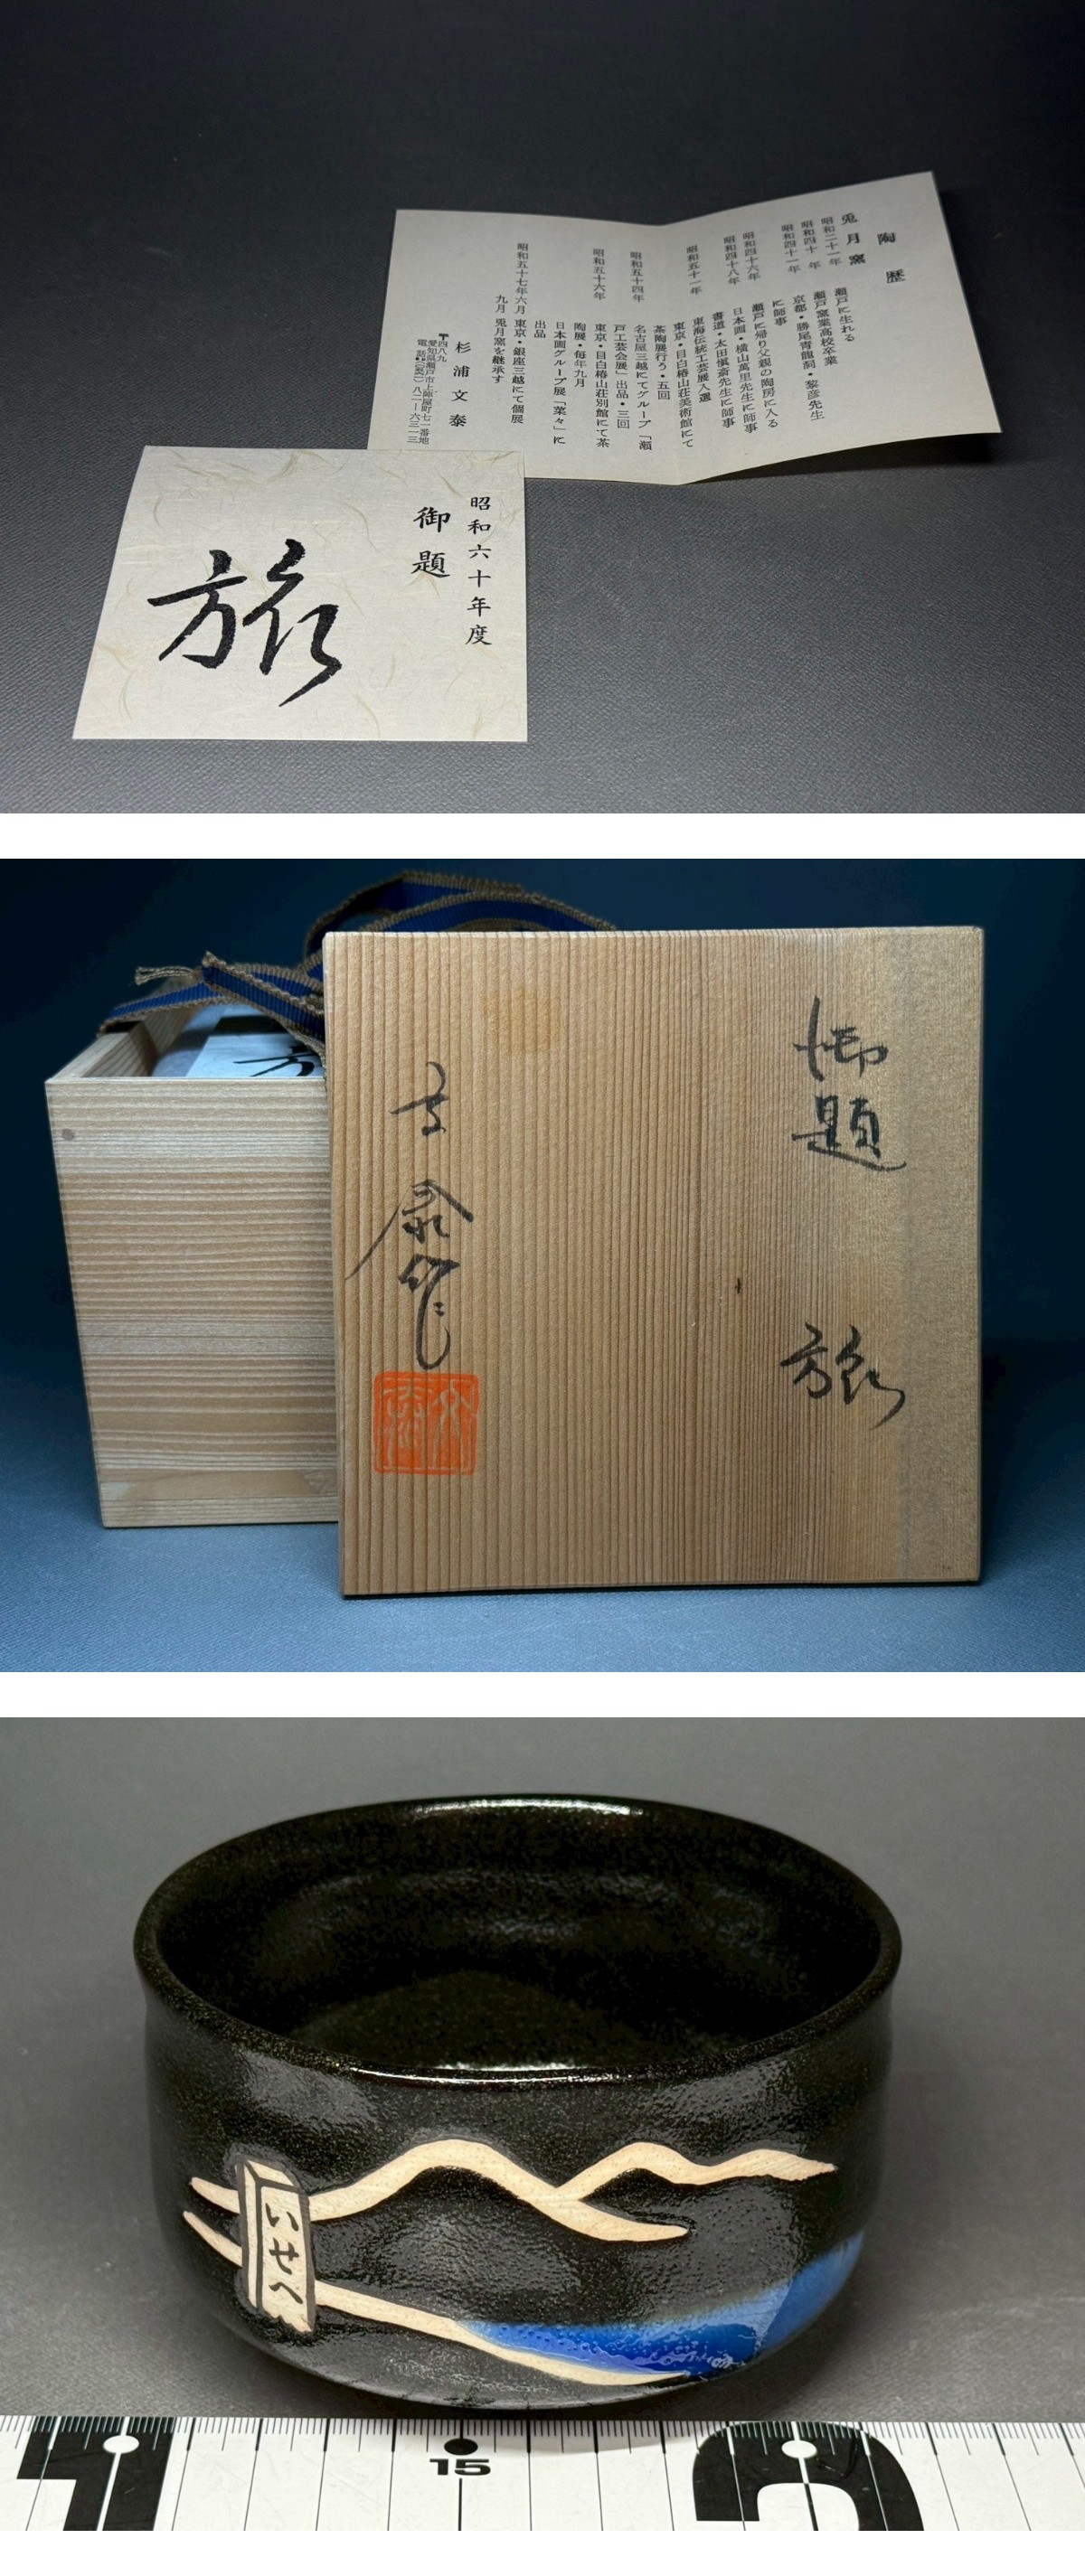 陶歴
兎月窯
昭和二十一年 瀬戸に生れる
昭和四十年 瀬戸窯業高校卒業
昭和四十一年 京都・勝尾青龍洞・黎彦先生
に師事
昭和四十六年 瀬戸に帰り父親の陶房に入る
昭和四十八年 日本画・横山萬里先生に師事
書道・太田愼斎先生に師事
昭和五十一年 東海伝統工芸展入選
東京・目白椿山荘美術館にて
茶陶展行う・五回
昭和五十四年 名古屋三越にてグループ「瀬
戸工芸会展」出品・三回
昭和五十六年 東京・目白椿山荘別館にて茶
陶展・毎年九月
日本画グループ展「菜々」に
出品
昭和五十七年六月 東京・銀座三越にて個展
九月 兎月窯を継承す
杉浦文泰
〒四八九
愛知県瀬戸市上陣屋町七一番地
昭和六十年度
御題
旅
御題 旅
文泰作
文泰
いせへ
15